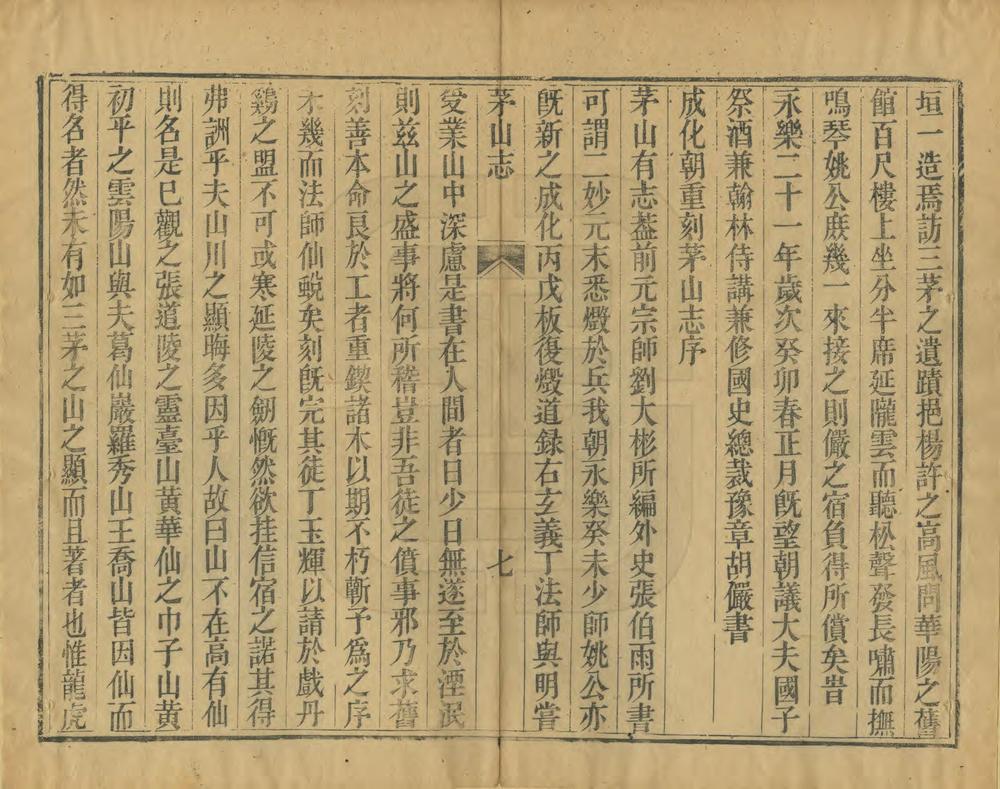 垣一造焉訪三茅之遺蹟挹楊許之高風問華陽之舊
館百尺樓上坐分半席延隴雲而聽松聲發長嘯而撫
鳴琴姚公庶幾一來接之則儼之宿負得所償矣旹
永樂二十一年歲次癸卯春正月旣望朝議大夫國子
祭酒兼翰林侍講兼修國史總裁豫章胡儼書
成化朝重刻茅山志序
茅山有志蓋前元宗師劉大彬所編外史張伯雨所書
可謂二妙元末悉燬於兵我朝永樂癸未少師姚公亦
旣新之成化丙戊板復燬道録右玄義丁法師與明嘗
茅山志
七
受業山中深慮是書在人間者日少日無遂至於湮泯
則茲山之盛事將何所稽豈非吾徒之僨事邪乃求舊
刻善本命良於工者重鍥諸木以期不朽蘄予爲之序
未幾而法師仙蛻矣刻旣完其徒丁玉輝以請於戲丹
鷄之盟不可或寒延陵之劒慨然欲挂信宿之諾其得
弗詶乎夫山川之顯晦多因乎人故曰山不在高有仙
則名是巳觀之張道陵之靈臺山黃華仙之巾子山黃
初平之雲陽山與夫葛仙巖羅秀山王喬山皆因仙而
得名者然未有如三茅之山之顯而且著者也惟龍虎